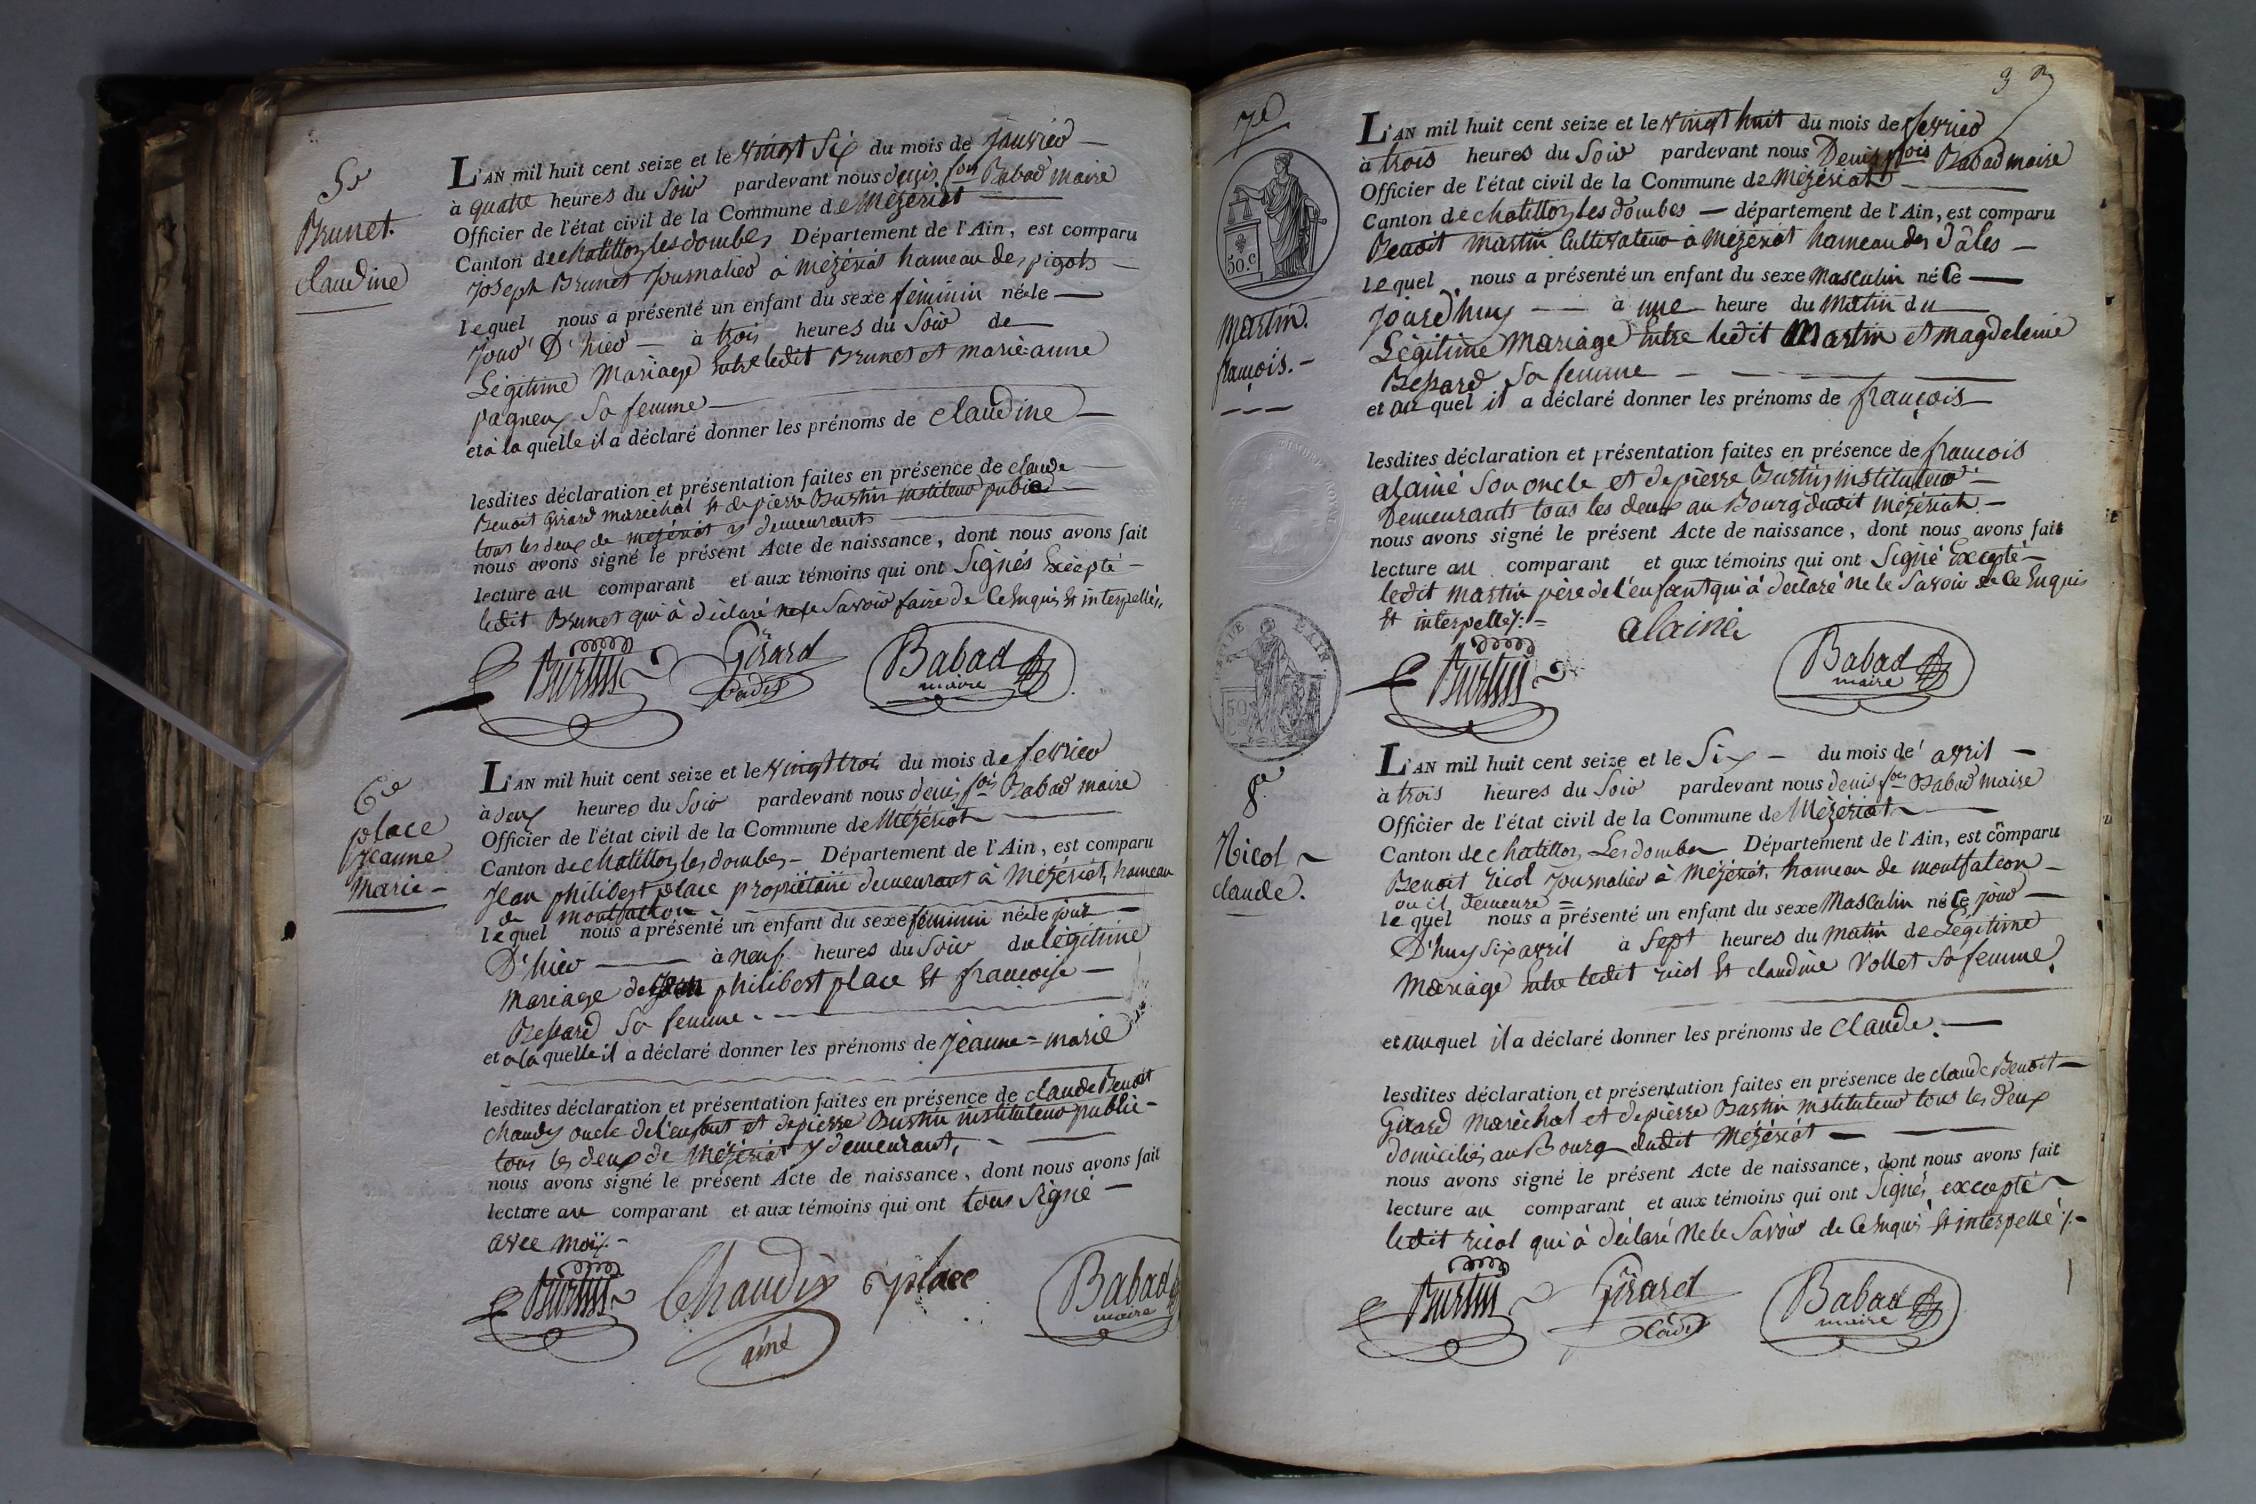 5e
Brunet.
claudine
L'AN mil huit cent seize et le vingt six du mois de janvier
à quatre heures du Soir pardevant nous denis fois Babad maire
Officier de l'état civil de la Commune de Mézériat
Canton de chatillon les dombes Département de l'Ain, est comparu
Joseph Brunet journalier à mézériat hameau des pigots
lequel nous a présenté un enfant du sexe féminin né le
jour D'hier à trois heures du Soir de
Légitime Mariage entre ledit Brunet et marie-anne
pagneux Sa femme
et à la quelle il a déclaré donner les prénoms de claudine
lesdites déclaration et présentation faites en présence de claude
Benoit Girard maréchal et de pierre Burtin instituteur public
tous les deux de mézériat y demeurants
nous avons signé le présent Acte de naissance, dont nous avons fait
lecture au comparant et aux témoins qui ont Signés Excepté
ledit Brunet qui à déclaré ne le Savoir faire de ce Enquis et interpellé,
Burtin Girard Babad
maire
6e
place
jeanne
marie
L'AN mil huit cent seize et le vingt trois du mois de fevrier
à deux heures du Soir pardevant nous denis fois Babad maire
Officier de l'état civil de la Commune de Mézériat
Canton de chatillon les dombes Département de l'Ain, est comparu
Jean philibert place propriétaire demeurant à Mézériat, hameau
de montfalcon
lequel nous a présenté un enfant du sexe féminin né le jour
D'hier à neuf heures du Soir du légitime
mariage de Jean philibert place Et françoise
Bessard Sa femme
et a la quelle il a déclaré donner les prénoms de jeanne=marie
lesdites déclaration et présentation faites en présence de claude Benoit
chaudy oncle de l'enfant et de pierre Burtin instituteur public
tous les deux de Mézériat y demeurant,
nous avons signé le présent Acte de naissance, dont nous avons fait
lecture au comparant et aux témoins qui ont tous signé
avec moi
Burtin Chaudy place Babad
ainé maire
7e
50.c
Martin.
françois.
L'AN mil huit cent seize et le vingt huit du mois de fevrier
à trois heures du Soir pardevant nous Denis fois Babad maire
Officier de l'état civil de la Commune de Mézériat
Canton de chatillon les dombes département de l'Ain, est comparu
Benoit martin Cultivateur à Mézériat hameau des dâles
lequel nous a présenté un enfant du sexe Masculin né ce
jourd'huy à une heure du Matin du
Légitime Mariage Entre ledit Martin et magdeleine
Bessard Sa femme
et au quel il a déclaré donner les prénoms de françois
lesdites déclaration et présentation faites en présence de françois
alainé Son oncle et de pierre Burtin instituteur
Demeurants tous les deux au Bourg dudit mézériat
nous avons signé le présent Acte de naissance, dont nous avons fait
lecture au comparant et aux témoins qui ont Signé Excepté
ledit martin père de l'enfant qui à déclaré ne le Savoir de Ce Enquis
Et interpellé
Burtin alainé Babad
maire
AIN.
50
8e
Nicol
claude.
L'AN mil huit cent seize et le Six du mois de avril
à trois heures du Soir pardevant nous denis fois Babad maire
Officier de l'état civil de la Commune de Mézériat
Canton de chatillon Les dombes Département de l'Ain, est comparu
Benoit nicol journalier à Mézériat, hameau de montfalcon
ou il demeure
lequel nous a présenté un enfant du sexe Masculin né ce jour
D'huy six avril à sept heures du matin de Légitime
Mariage Entre ledit nicol Et claudine Vollet Sa femme
et auquel il a déclaré donner les prénoms de claude.
lesdites déclaration et présentation faites en présence de claude Benoit
Girard Maréchal et de pierre Burtin instituteur tous les deux
domiciliés au Bourg dudit Mézériat
nous avons signé le présent Acte de naissance, dont nous avons fait
lecture au comparant et aux témoins qui ont Signés, excepté
ledit nicol qui à déclaré Ne le Savoir de Ce Enquis Et interpellé
Burtin Girard Babad
maire